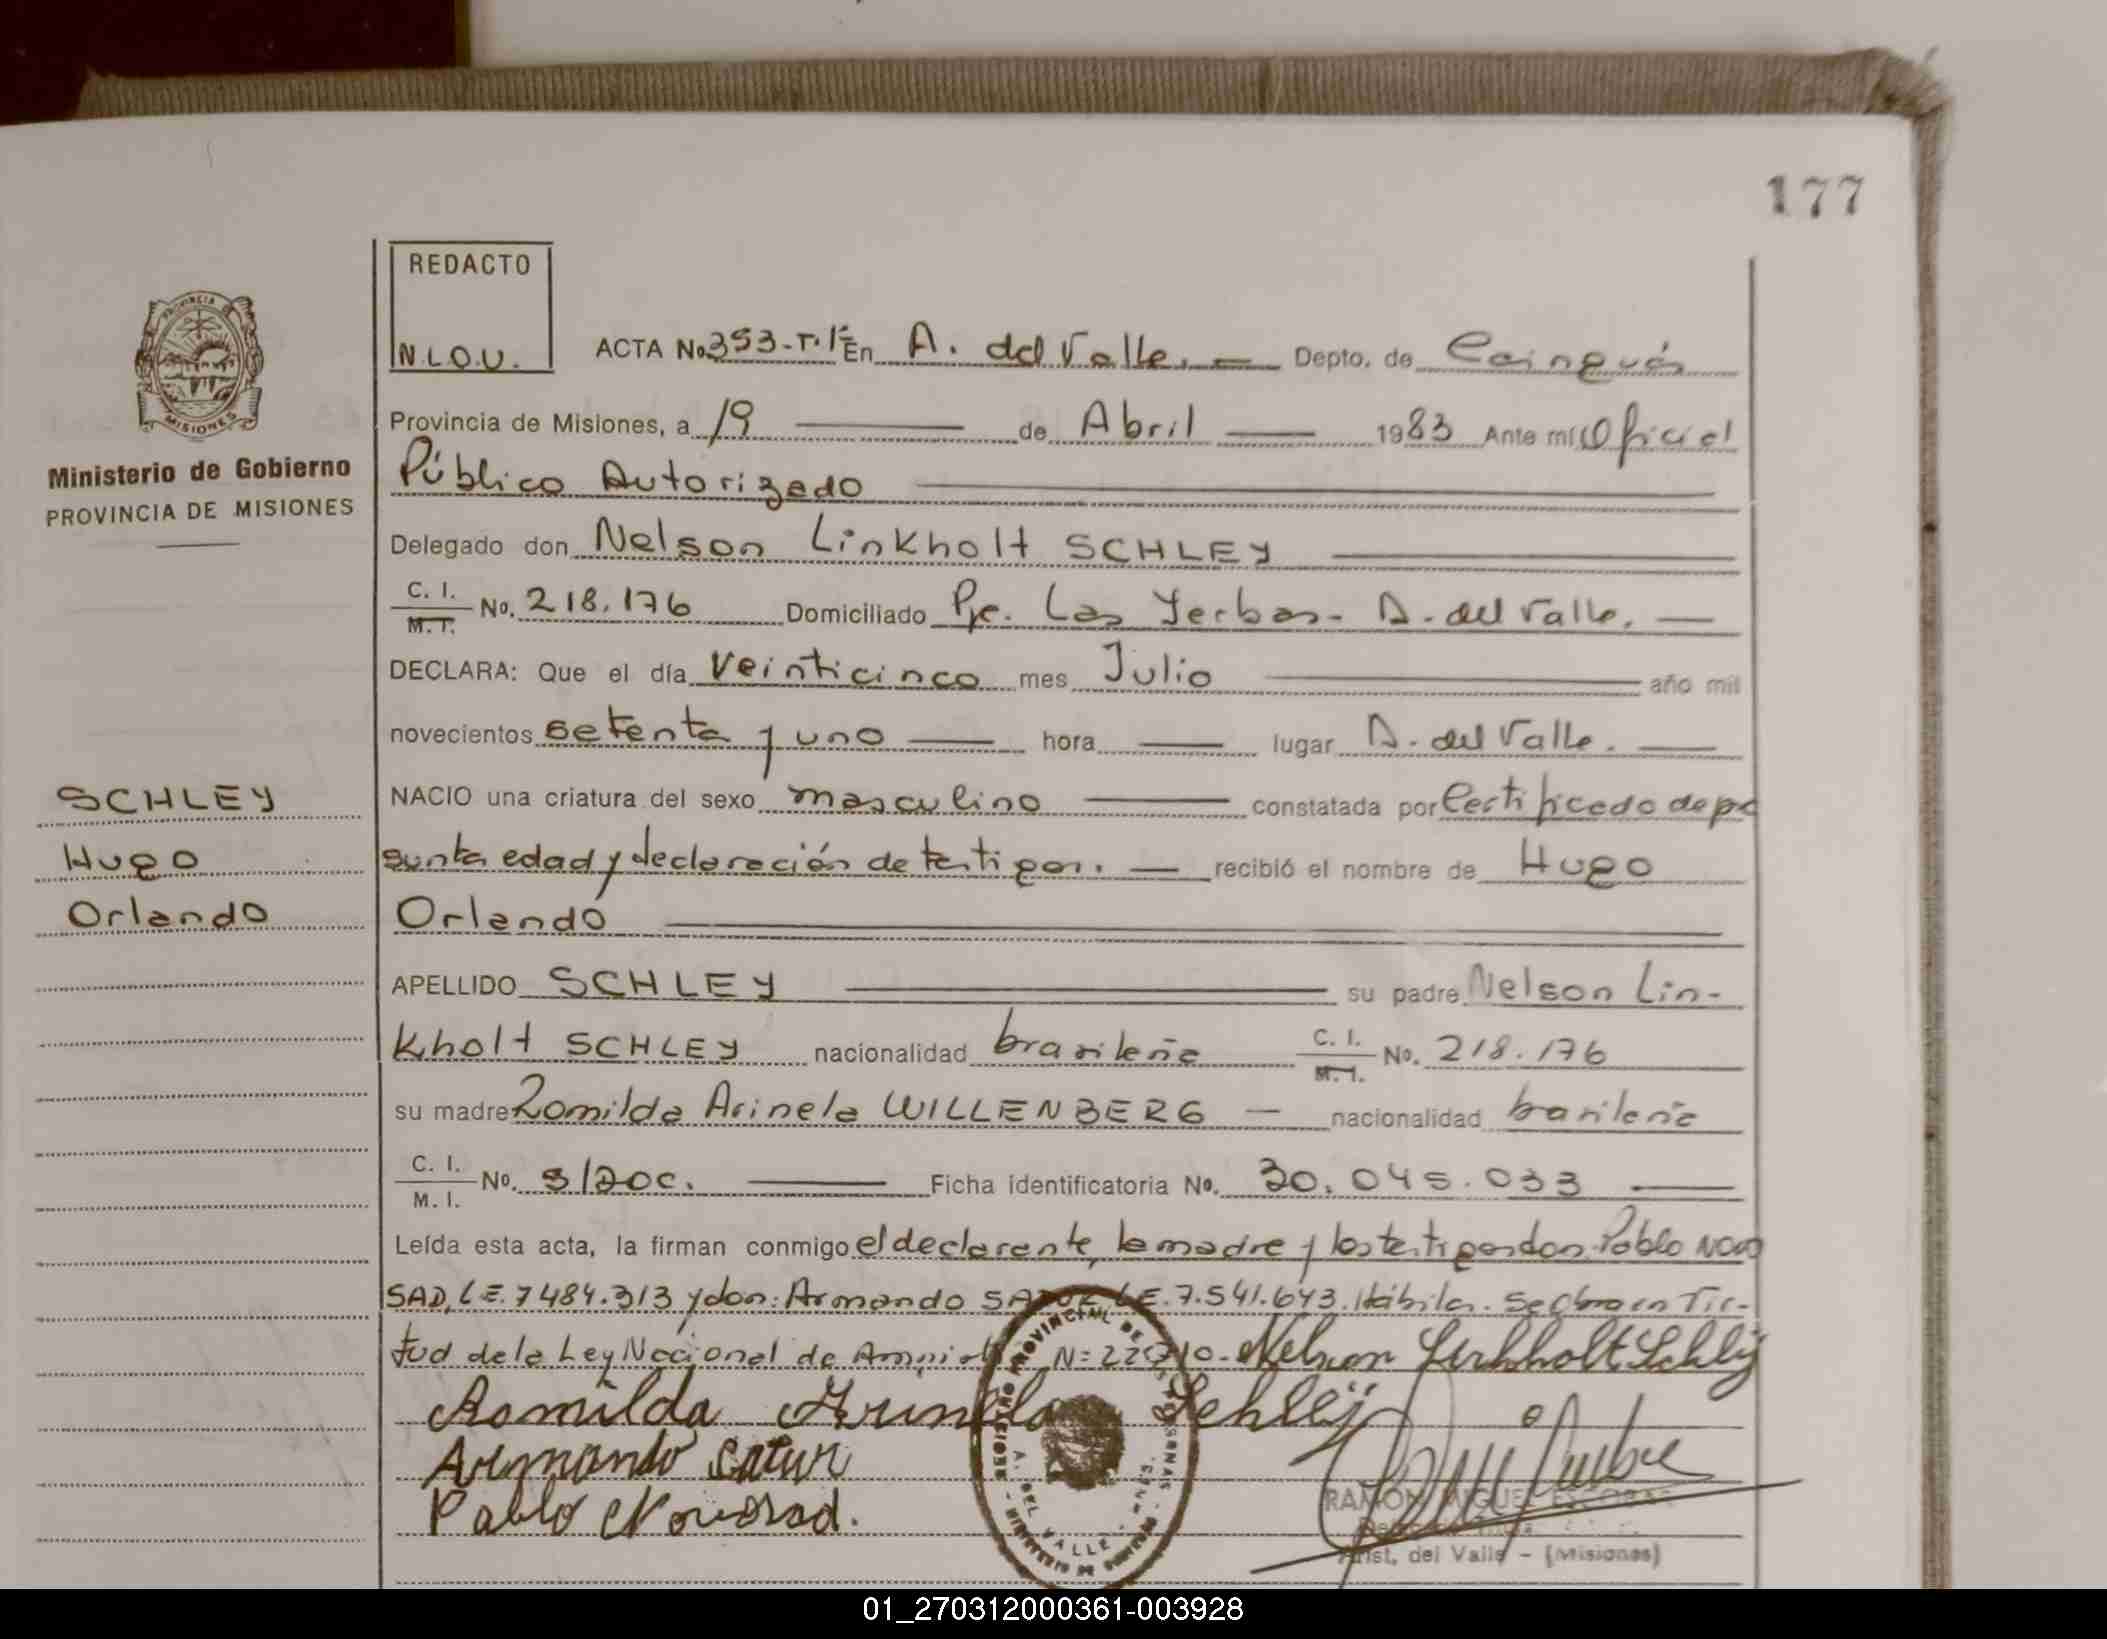 177
REDACTO
N.L.O.U.
ACTA No. 353-T.1º En A. del Valle. — Depto. de Cainguás
Provincia de Misiones, a 19 — de Abril — 1983 Ante mí Oficial
Ministerio de Gobierno
PROVINCIA DE MISIONES
Público Autorizado
Delegado don Nelson Linkholt SCHLEY
C. I. / M. I. No. 218.176 Domiciliado Pje. Las Yerbas - A. del Valle. —
DECLARA: Que el día veinticinco mes Julio — año mil
novecientos setenta y uno — hora — lugar A. del Valle. —
SCHLEY
Hugo
Orlando
NACIO una criatura del sexo masculino — constatada por Certificado de pre
sunta edad y declaración de testigos. — recibió el nombre de Hugo
Orlando
APELLIDO SCHLEY — su padre Nelson Lin-
kholt SCHLEY nacionalidad brasileña C. I. / M. I. No. 218.176
su madre Romilda Arinela WILLENBERG — nacionalidad brasileña
C. I. / M. I. No. s/doc. — Ficha identificatoria No. 30.045.033 —
Leída esta acta, la firman conmigo el declarante, la madre y los testigos don Pablo NOVO
SAD, LE. 7484.313 y don: Armando SATUR LE. 7.541.643. Hábiles. Se labra en Vir-
tud de la Ley Nacional de Amnistía N= 22710.- Nelson Linkholt Schley
Romilda Arinela Schley
Armando Satur
Pablo Novosad.
REGISTRO PROVINCIAL DE LAS PERSONAS
A. DEL VALLE - MNES.
MINISTERIO DE GOBIERNO
RAMON MIGUEL ESCOBAR
Arist. del Valle - (Misiones)
01_270312000361-003928